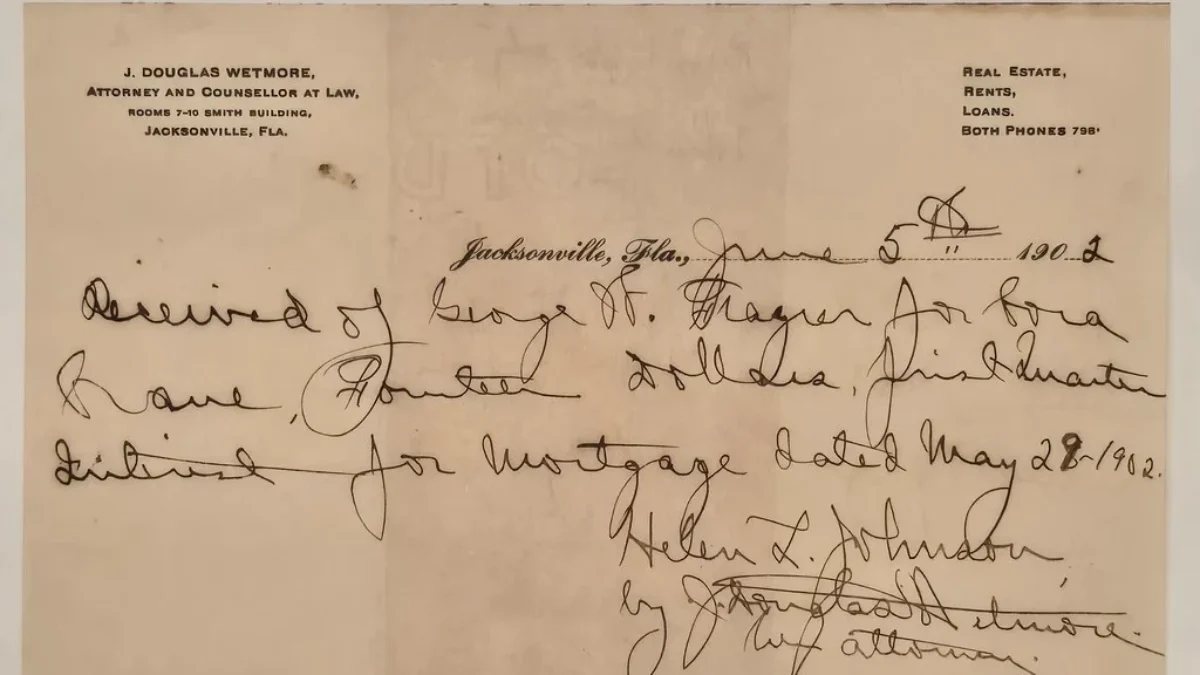 J. DOUGLAS WETMORE,
ATTORNEY AND COUNSELLOR AT LAW,
ROOMS 7-10 SMITH BUILDING,
JACKSONVILLE, FLA.
REAL ESTATE,
RENTS,
LOANS.
BOTH PHONES 798
Jacksonville, Fla., June 5th 1902
Received of George H. for Cora
Fourteen Dollars, first Quarter
Interest for Mortgage dated May 28-1902.
Helen L. Johnson,
by J. Douglas Wetmore.
her attorney.